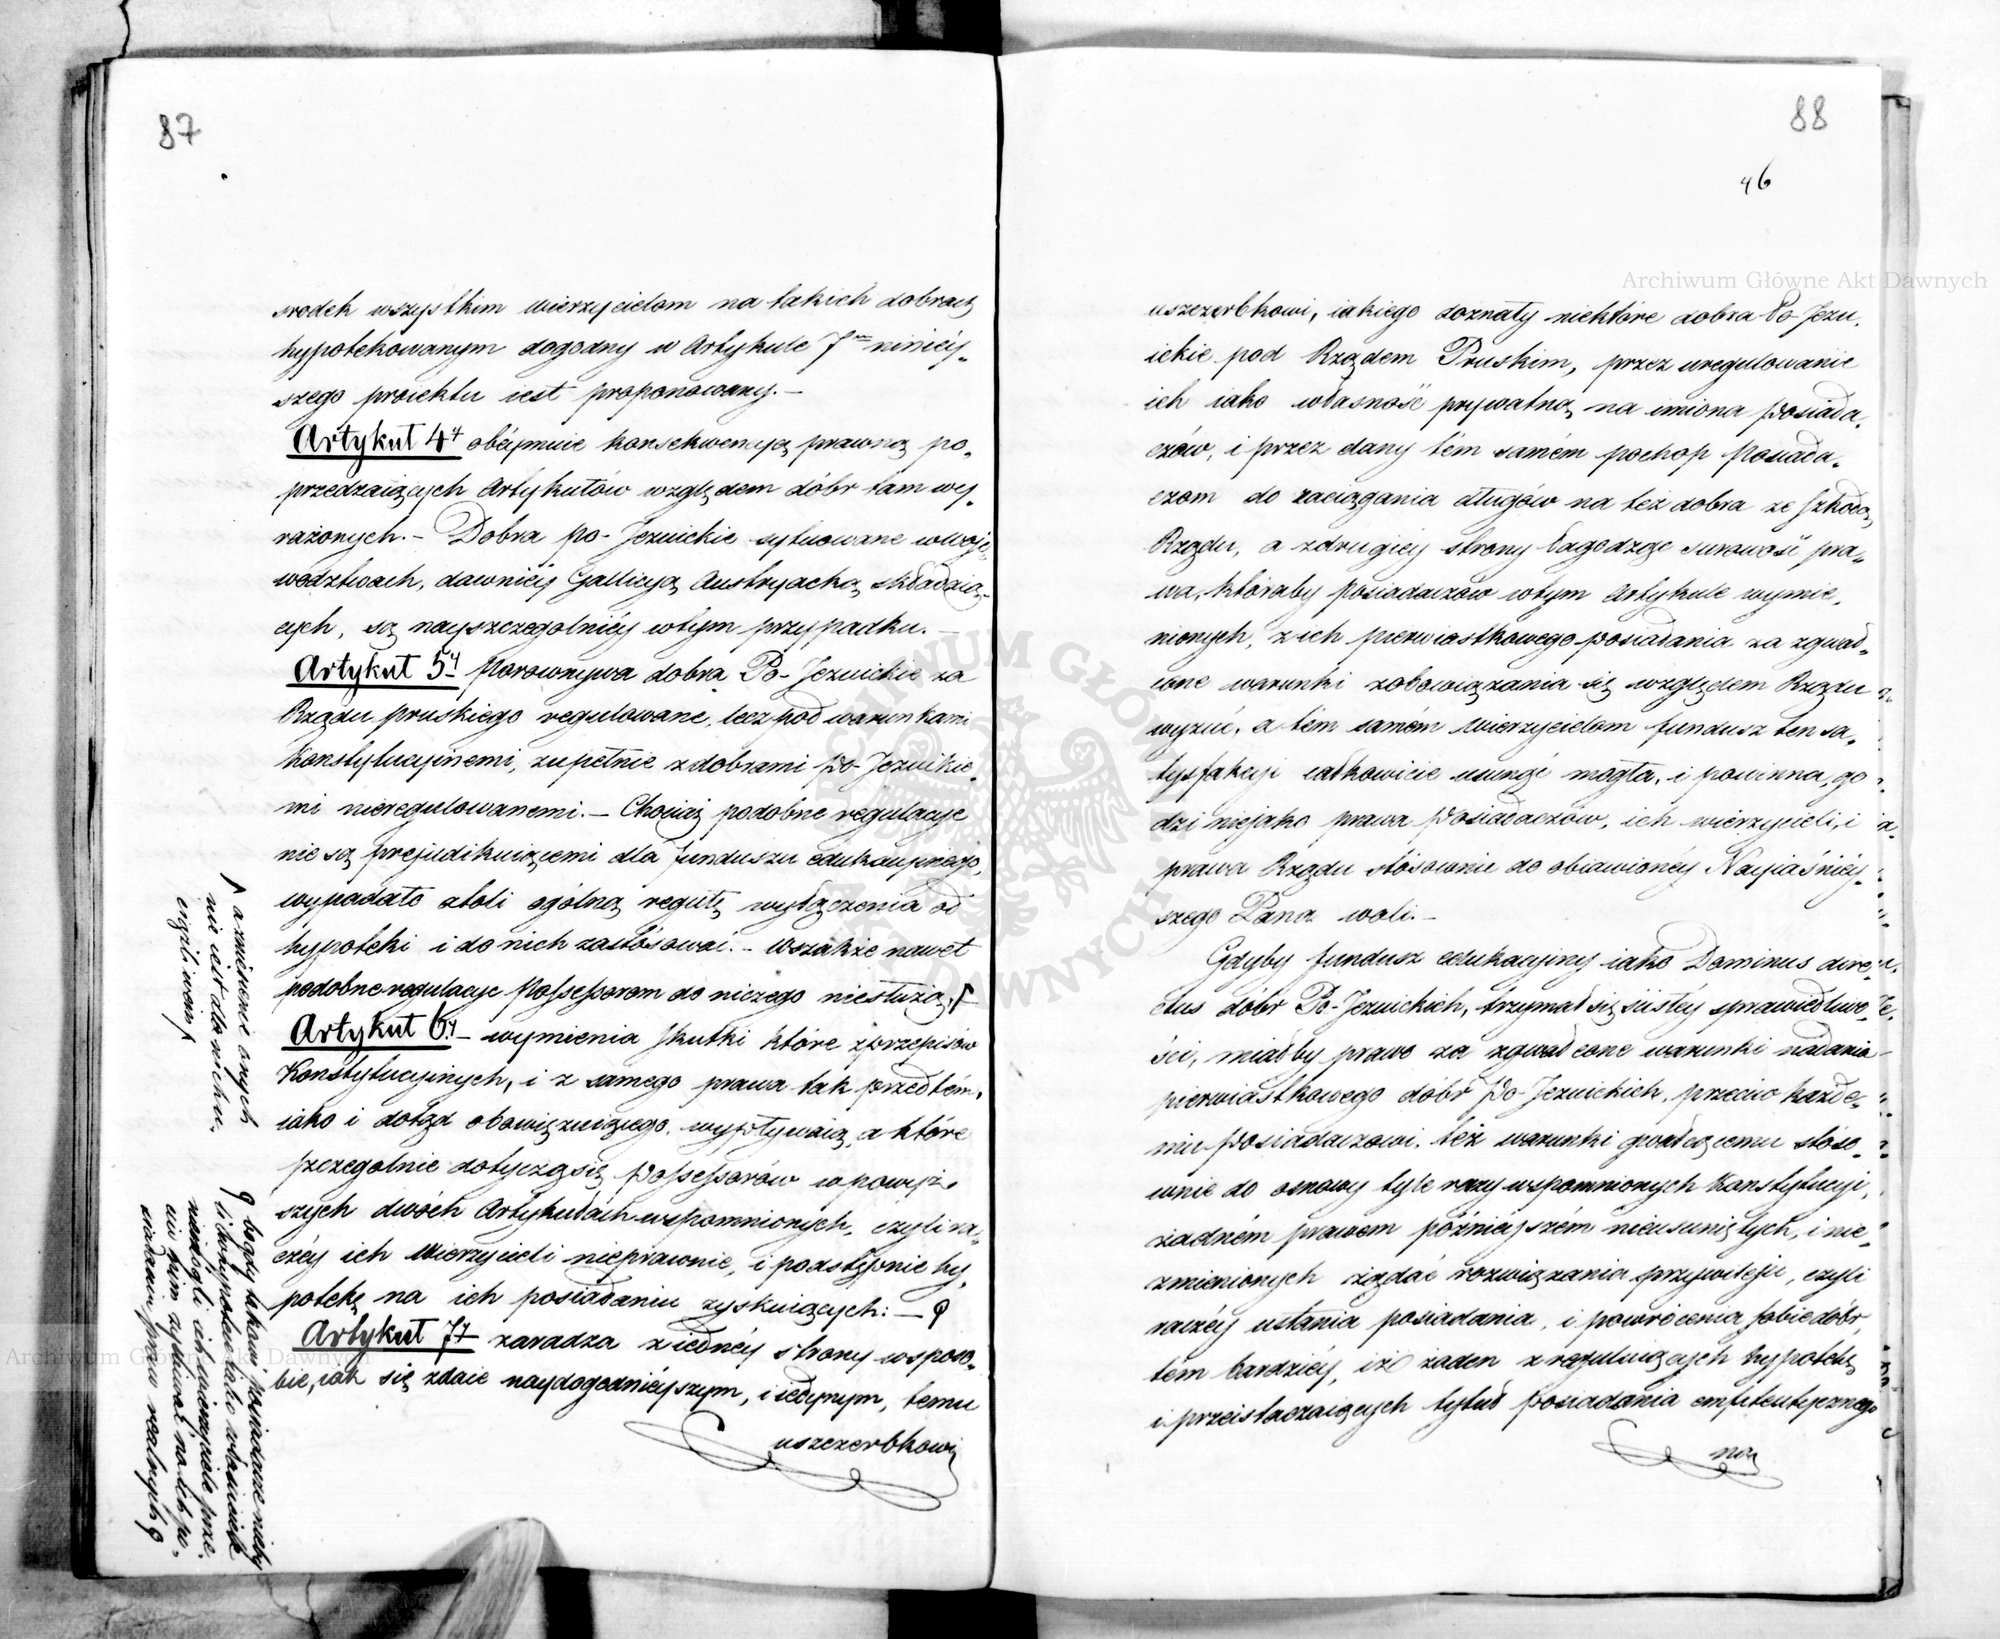 87
srodek wszystkim wierzycielom na takich dobrach
hypotekowanym dogodny w Artykule 7m ninieÿ-
szego proiektu iest proponowany.—
Artykuł 4ty obéjmuie konsekwencyą prawną po-
przedzaiących Artykułów względem dóbr tam wy-
rażonych.— Dobra po-Jezuickie sytuowane w Woje-
wodztwach, dawniéy Gallicyą Austryacką składaią-
cych, są nayszczegolniéy w tym przypadku.—
Artykuł 5ty Porownywa dobra Po-Jezuickie za
Rządu pruskiego regulowane, lecz pod warunkami
Konstytucyinemi, zupełnie z dobrami po-Jezuickie-
mi nieregulowanemi.— Chociaż podobne regulacye
nie są prejudikuiącemi dla funduszu edukacyinego,
wypadało atoli ogólną regułę wyłączenia od
hypoteki i do nich zastósować.— Wszakże nawet
podobne regulacye Possessorom do niczego niesłużą,
Artykuł 6ty— wymienia skutki które z przepisów
Konstytucyinych, i z samego prawa tak przedtém,
iako i dotąd obowięzuiącego, wypływaią, a które
szczegolnie dotyczą się Possessorów w powyż-
szych dwóch Artykułach wspomnionych, czyli ra-
czéy ich Wierzycieli nieprawnie, i podstępnie hy-
potekę na ich posiadaniu zyskuiących:—
Artykuł 7y zaradza z iednéy strony w sposo-
bie, iak się zdaie naydogodniéyszym, i iedynym, temu
uszczerbkowi
a zniesienie onych
nie iest dla nich u-
ciążliwem
bogdy takowi posiadacze nieby
li ... iako właściciele
niemogli ich wierzyciele prze-
... na ich po-
siadaniu prawa realnych
88
46
uszczerbkowi, iakiego doznały niektóre dobra Po-Jezu-
ickie pod Rządem Pruskim, przez uregulowanie
ich iako własność prywatną na imiona Posiada-
czów, i przez dany tém samém pochop Posiada-
czom do zaciągania długów na też dobra ze szkodą
Rządu, a z drugiéy strony łagodząc surowość pra-
wa, któraby posiadaczów w tym Artykule wymie-
nionych, z ich pierwiastkowego posiadania za zgwał-
cone warunki zobowiązania się względem Rządu
wyzuć, a tém samém Wierzycielom fundusz ten sa-
tysfakcyi całkowicie usunąć mogła, i powinna, go-
dzi niejako prawa Posiadaczów, ich wierzycieli, i
prawa Rządu stósownie do obiawionéy Nayiaśniéy-
szego Pana woli.—
Gdyby fundusz edukacyiny iako Dominus dire-
ctus dóbr Po-Jezuickich, trzymał się ścisłéy sprawiedliwo-
ści, miałby prawo za zgwałcone warunki nadania
pierwiastkowego dóbr Po-Jezuickich, przeciw każde-
mu Posiadaczowi, też warunki gwałcącemu stóso-
wnie do osnowy tyle razy wspomnionych Konstytucyi,
żadném prawem późniéyszém nieusuniętych, i nie-
zmienionych żądać rozwiązania przywileju, czyli
raczéy ustania posiadania, i powrócenia sobie dóbr,
tém bardziéy, iż żaden z reguluiących hypotekę
i przeistaczaiących tytuł posiadania emfiteutycznego
na
Archiwum Główne Akt Dawnych
Archiwum Główne Akt Dawnych
ARCHIWUM GŁÓWNE AKT DAWNYCH